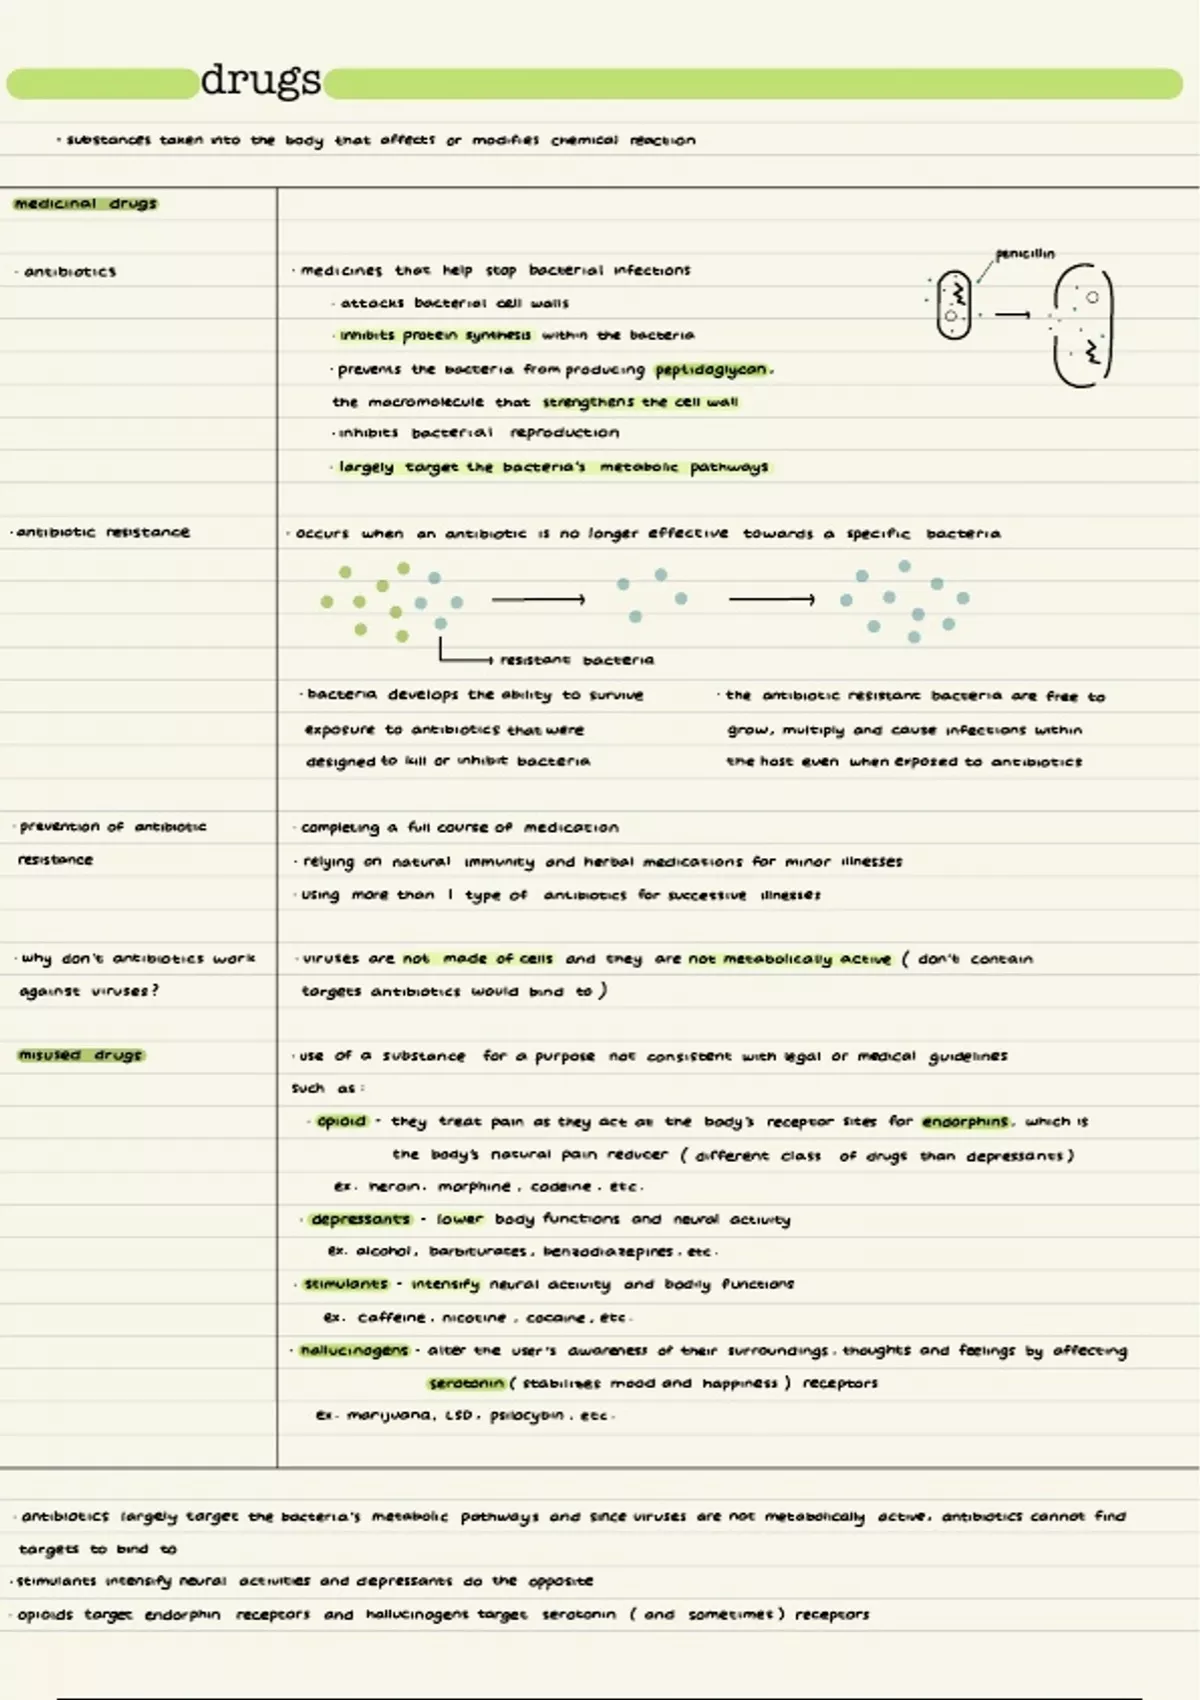 drugs
· substances taken into the body that affects or modifies chemical reaction
medicinal drugs
· antibiotics
· medicines that help stop bacterial infections
· attacks bacterial cell walls
· inhibits protein synthesis within the bacteria
· prevents the bacteria from producing peptidoglycan,
the macromolecule that strengthens the cell wall
· inhibits bacterial reproduction
· largely target the bacteria's metabolic pathways
penicillin
· antibiotic resistance
· occurs when an antibiotic is no longer effective towards a specific bacteria
resistant bacteria
· bacteria develops the ability to survive
exposure to antibiotics that were
designed to kill or inhibit bacteria
· the antibiotic resistant bacteria are free to
grow, multiply and cause infections within
the host even when exposed to antibiotics
· prevention of antibiotic
resistance
· completing a full course of medication
· relying on natural immunity and herbal medications for minor illnesses
· using more than 1 type of antibiotics for successive illnesses
· why don't antibiotics work
against viruses?
· viruses are not made of cells and they are not metabolically active ( don't contain
targets antibiotics would bind to )
misused drugs
· use of a substance for a purpose not consistent with legal or medical guidelines
such as:
· opioid - they treat pain as they act at the body's receptor sites for endorphins, which is
the body's natural pain reducer ( different class of drugs than depressants)
ex. heroin, morphine, codeine, etc.
· depressants - lower body functions and neural activity
ex. alcohol, barbiturates, benzodiazepines, etc.
· stimulants - intensify neural activity and bodily functions
ex. caffeine, nicotine, cocaine, etc.
· hallucinogens - alter the user's awareness of their surroundings, thoughts and feelings by affecting
serotonin ( stabilizes mood and happiness ) receptors
ex. marijuana, LSD, psilocybin, etc.
· antibiotics largely target the bacteria's metabolic pathways and since viruses are not metabolically active, antibiotics cannot find
targets to bind to
· stimulants intensify neural activities and depressants do the opposite
· opioids target endorphin receptors and hallucinogens target serotonin ( and sometimes ) receptors